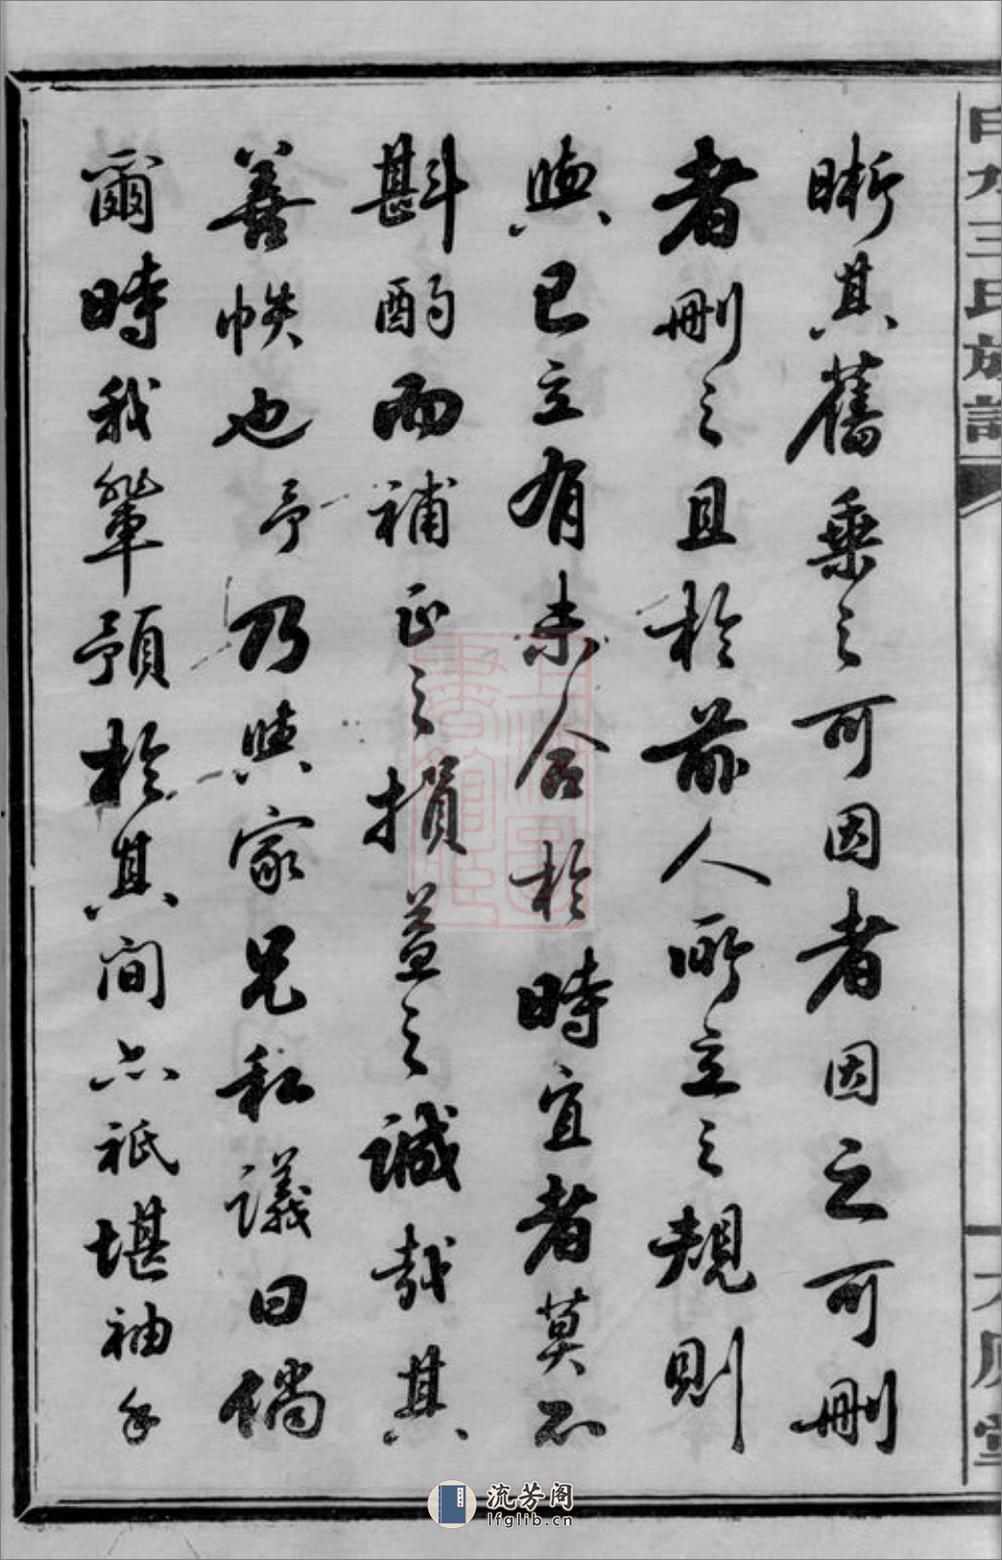 王氏族譜
晰其舊乘之可因者因之可刪
者刪之且於前人所立之規則
與已立有未合於時宜者莫不
斟酌而補正之損益之誠哉其
善帙也予乃與家兄私議曰倘
爾時我輩預於其間亦祇堪袖手
流芳阁
lfglib.cn